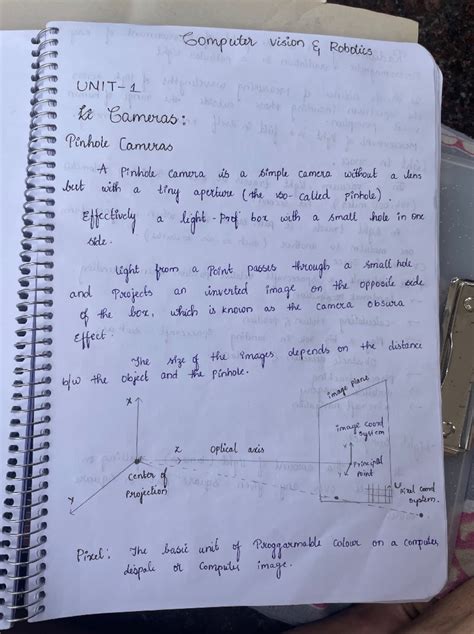 Computer vision & Robotics
UNIT-1
Cameras:
Pinhole Cameras
A Pinhole camera is a simple camera without a lens
but with a tiny aperture (the so-called pinhole).
Effectively a light-Prof box with a small hole in one
side.
light from a Point passes through a small hole
and Projects an inverted image on the opposite side
of the box, which is known as the camera obsura
Effect.
The size of the images depends on the distance
b/w the object and the pinhole.
image plane
X
image coord
system
Z optical axis
Y
Principal
Point
center of
Projection
Pixel coord
system.
Y
Pixel: The basic unit of Proggarmable colour on a computer
dispale or computer image.